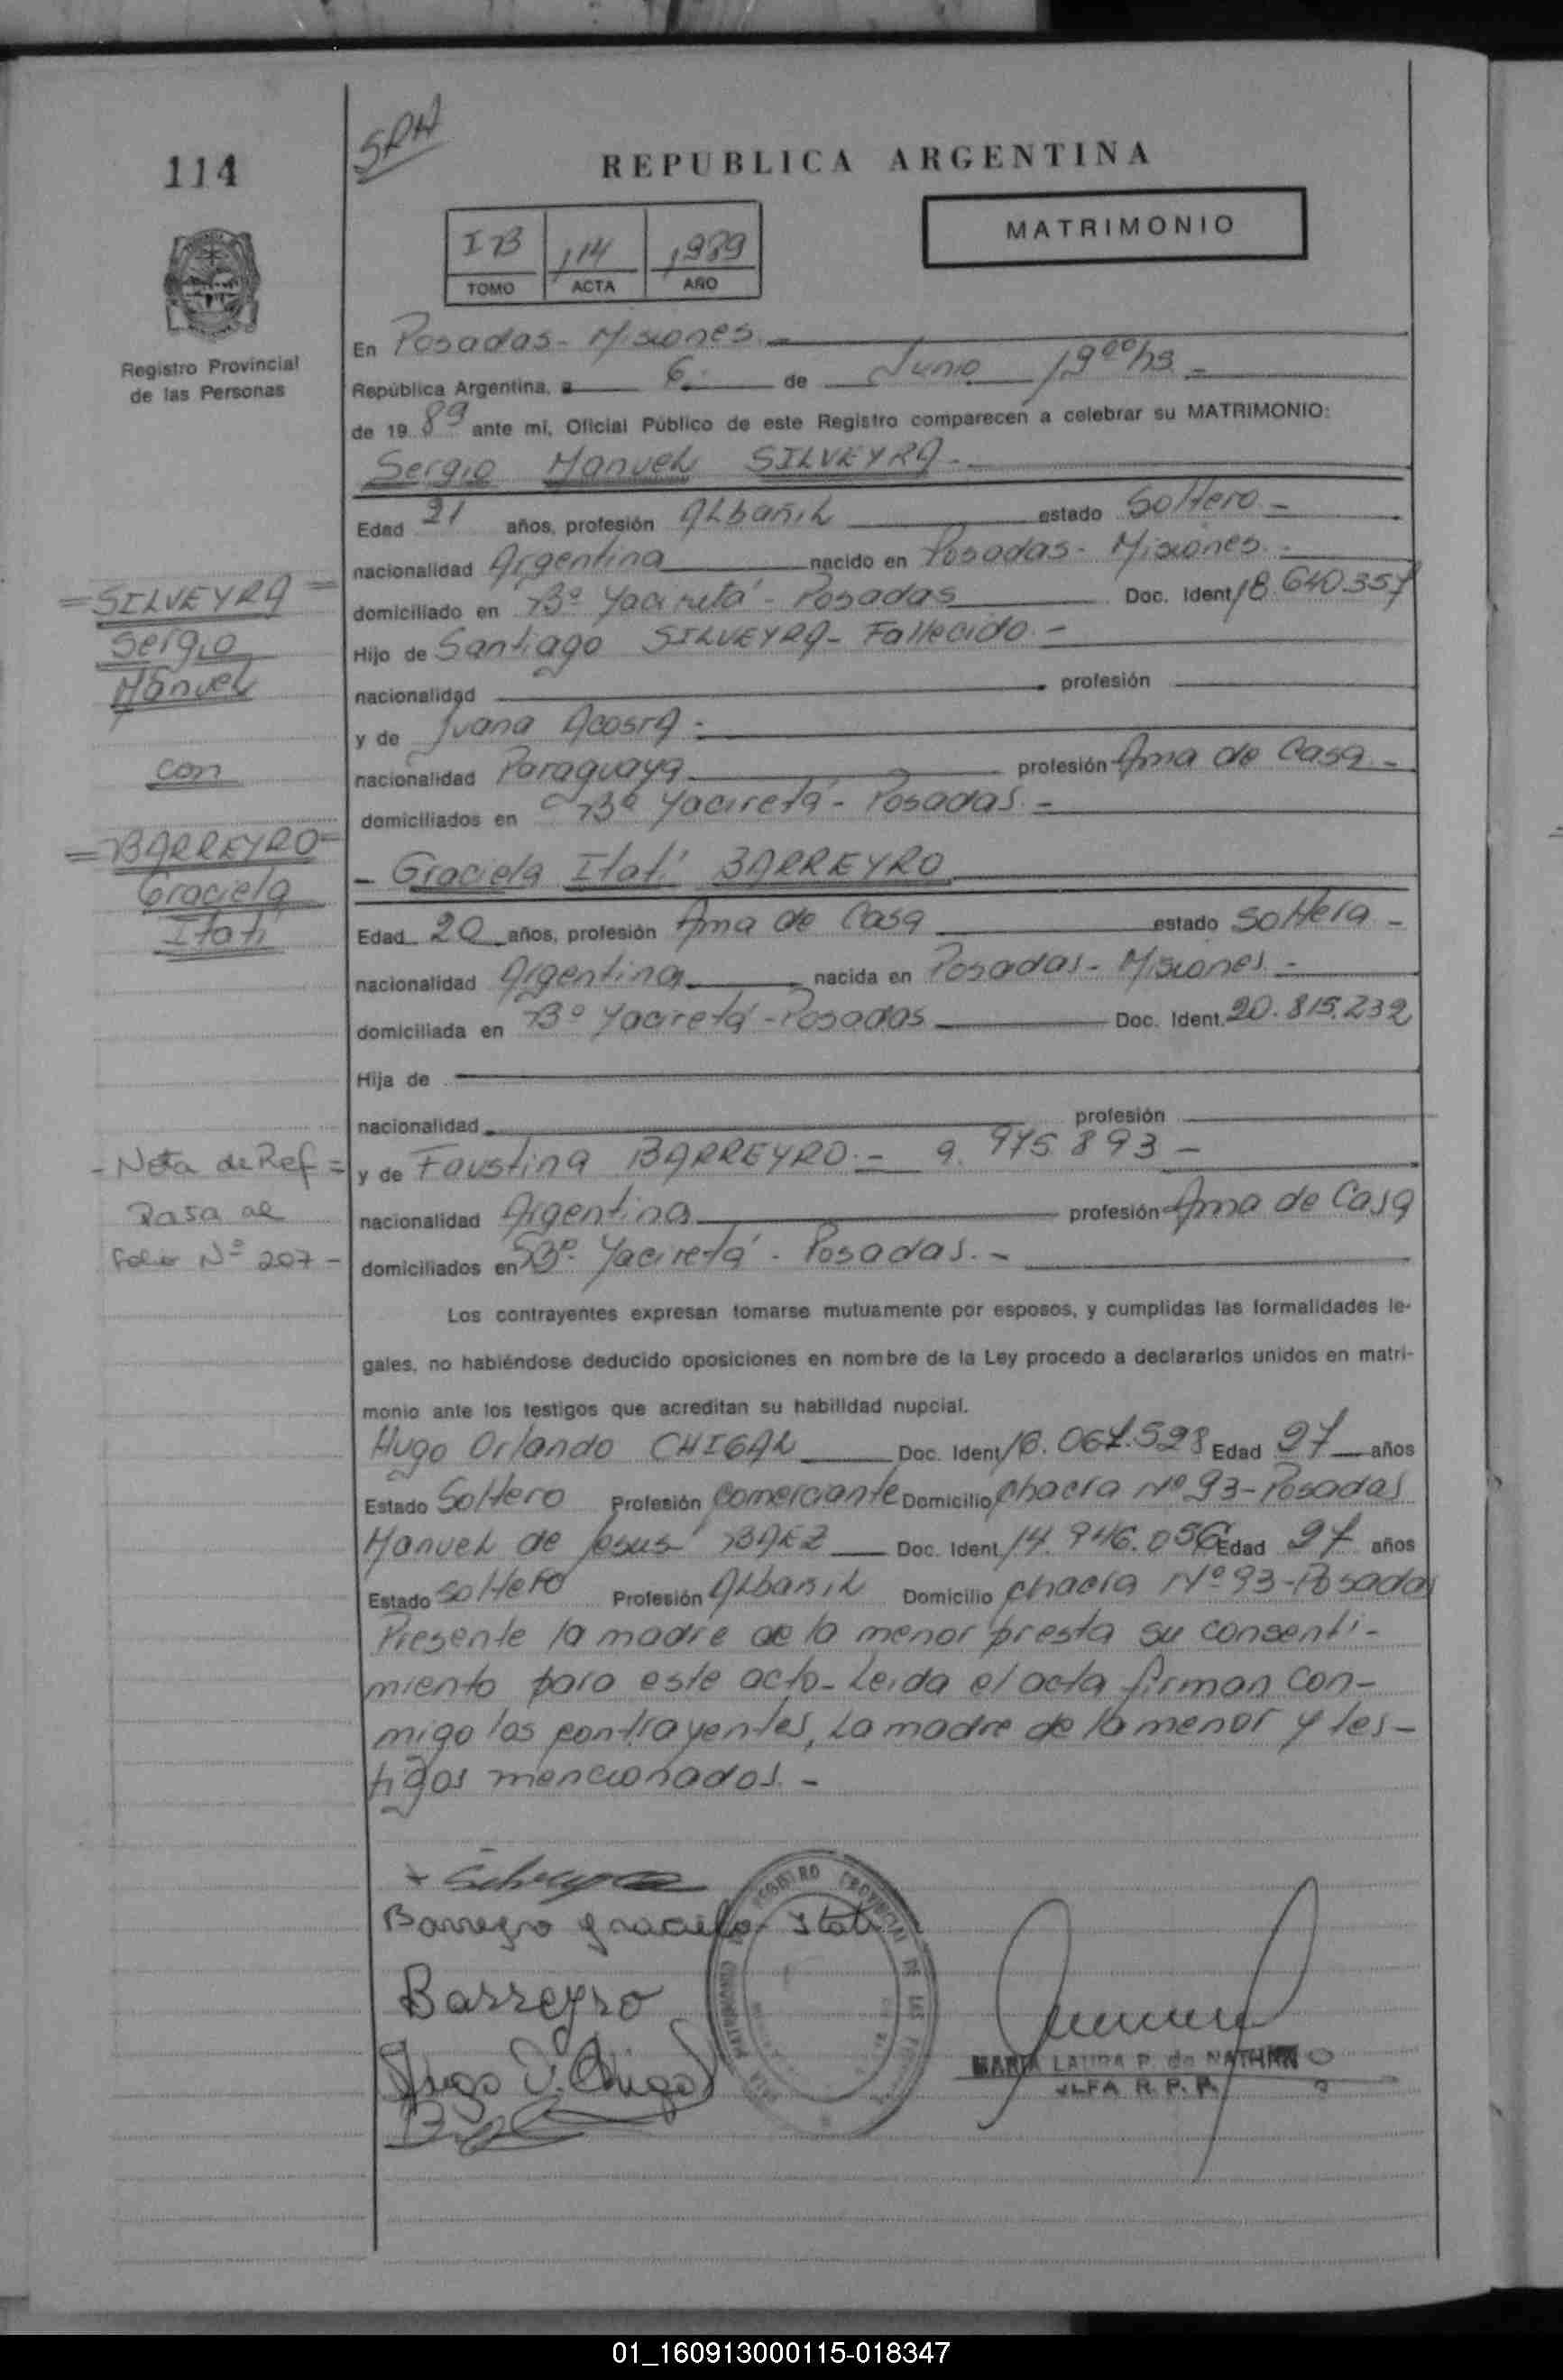 114
SRH
REPUBLICA ARGENTINA
MATRIMONIO
IB 114 1989
TOMO ACTA AÑO
Registro Provincial
de las Personas
En Posadas - Misiones.-
República Argentina, a 6 de Junio 19ºº hs.-
de 1989 ante mi, Oficial Público de este Registro comparecen a celebrar su MATRIMONIO:
Sergio Manuel SILVEYRA.-
Edad 21 años, profesión Albañil estado Soltero.-
nacionalidad Argentina nacido en Posadas - Misiones.-
domiciliado en Bº Yaciretá - Posadas Doc. Ident. 18.640.357
Hijo de Santiago SILVEYRA - Fallecido.-
nacionalidad profesión
y de Juana Acosta.-
nacionalidad Paraguaya profesión Ama de Casa.-
domiciliados en Bº Yaciretá - Posadas.-
- Graciela Itatí BARREYRO
Edad 20 años, profesión Ama de Casa estado Soltera -
nacionalidad Argentina nacida en Posadas - Misiones.-
domiciliada en Bº Yaciretá - Posadas Doc. Ident. 20.815.232
Hija de
nacionalidad profesión
y de Faustina BARREYRO.- 9.975.893 -
nacionalidad Argentina profesión Ama de Casa
domiciliados en Bº Yaciretá - Posadas.-
Los contrayentes expresan tomarse mutuamente por esposos, y cumplidas las formalidades le-
gales, no habiéndose deducido oposiciones en nombre de la Ley procedo a declararlos unidos en matri-
monio ante los testigos que acreditan su habilidad nupcial.
Hugo Orlando CHIGAL Doc. Ident. 16.067.528 Edad 27 años
Estado Soltero Profesión Comerciante Domicilio Chacra Nº 93 - Posadas
Manuel de Jesus BAEZ Doc. Ident. 14.946.056 Edad 27 años
Estado Soltero Profesión Albañil Domicilio Chacra Nº 93 - Posadas
Presente la madre de la menor presta su consenti-
miento para este acto - Leida el acta firman con-
migo los contrayentes, La madre de la menor y tes-
tigos mencionados.-
= SILVEYRA =
Sergio
Manuel
con
= BARREYRO =
Graciela
Itatí
- Nota de Ref =
Pasa al
folio Nº 207 -
Barreyro Graciela Itati
Barreyro
Hugo O. Chigal
REGISTRO PROVINCIAL DE LAS
MARIA LAURA P. de NATHAN
JEFA R. P. P.
01_160913000115-018347